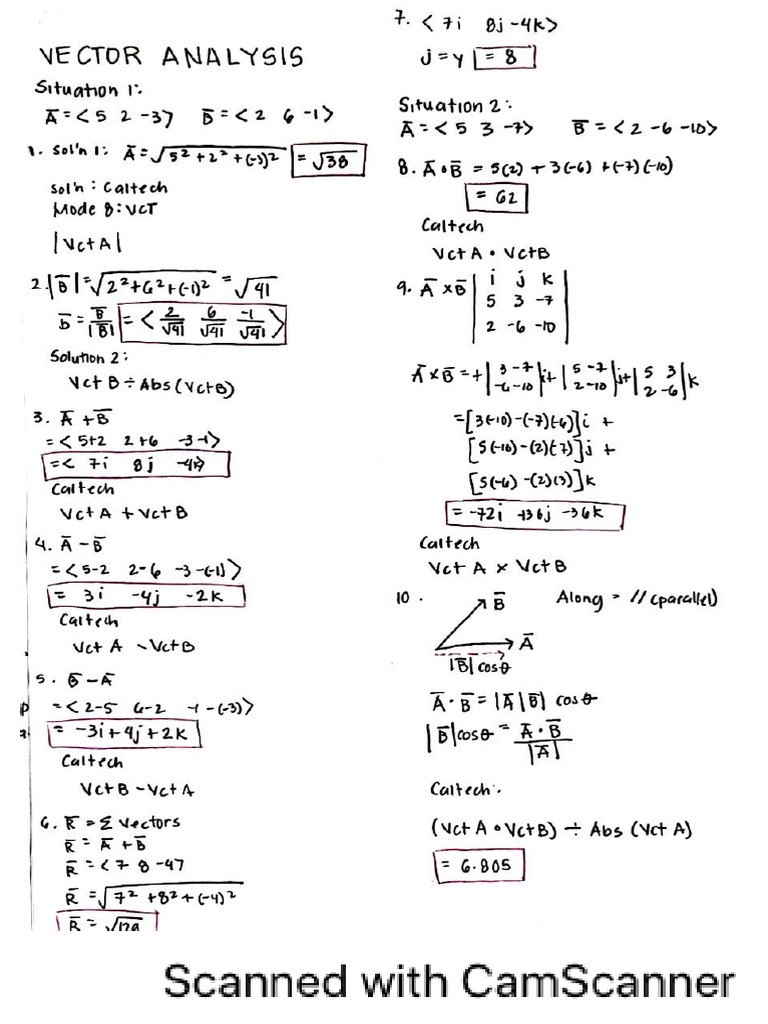 VECTOR ANALYSIS
Situation 1:
A̅ = < 5 2 -3> B̅ = < 2 6 -1 >
1. Sol'n 1: A̅ = √5² + 2² + (-3)² = √38
Sol'n : Caltech
Mode 8 : VCT
|Vct A|
2. |B̅| = √2² + 6² + (-1)² = √41
b̅ = B̅/|B̅| = < 2/√41 6/√41 -1/√41 >
Solution 2:
Vct B ÷ Abs (Vct B)
3. A̅ + B̅
= < 5+2 2+6 -3-1 >
= < 7i 8j -4k>
Caltech
Vct A + Vct B
4. A̅ - B̅
= < 5-2 2-6 -3-(-1) >
= 3i -4j -2k
Caltech
Vct A - Vct B
5. B̅ - A̅
= < 2-5 6-2 -1-(-3) >
= -3i + 4j + 2k
Caltech
Vct B - Vct A
6. R̅ = Σ Vectors
R̅ = A̅ + B̅
R̅ = < 7 8 -4>
R̅ = √7² + 8² + (-4)²
R̅ = √129
7. < 7i 8j -4k >
j = y = 8
Situation 2:
A̅ = < 5 3 -7> B̅ = < 2 -6 -10>
8. A̅ • B̅ = 5(2) + 3(-6) + (-7)(-10)
= 62
Caltech
Vct A • Vct B
9. A̅ x B̅ | i j k |
| 5 3 -7 |
| 2 -6 -10 |
A̅ x B̅ = + | 3 -7 | i + | 5 -7 | j + | 5 3 | k
| -6 -10 | | 2 -10 | | 2 -6 |
= [3(-10) - (-7)(-6)] i +
[5(-10) - (2)(-7)] j +
[5(-6) - (2)(3)] k
= -72i + 36j - 36k
Caltech
Vct A x Vct B
10. B̅ Along = // (parallel)
A̅
|B̅| cos θ
A̅ • B̅ = |A̅||B̅| cos θ
|B̅| cos θ = A̅ • B̅ / |A̅|
Caltech:
(Vct A • Vct B) ÷ Abs (Vct A)
= 6.805
Scanned with CamScanner